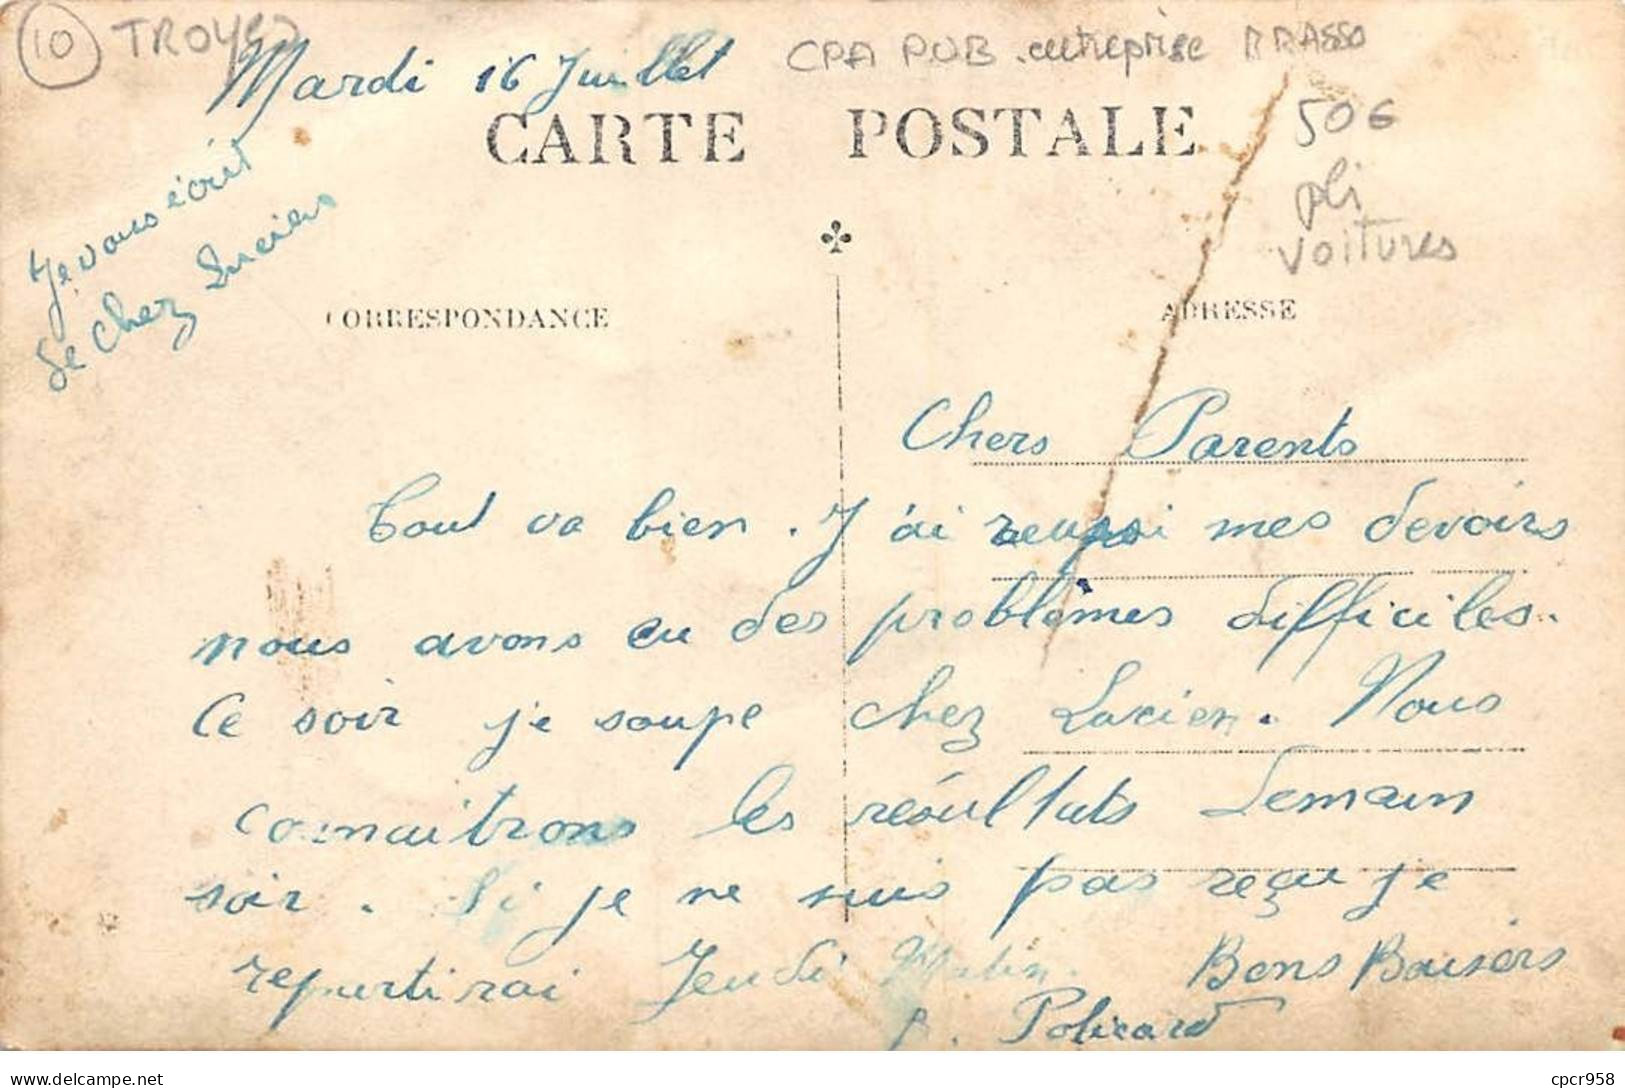 10 TROYES
CPA PUB entreprise BRASSO
50€
pli
voitures
Mardi 16 Juillet
CARTE POSTALE
Je vous écrit
de chez Lucien
CORRESPONDANCE
ADRESSE
Chers Parents
Tout va bien. J'ai reussi mes devoirs
nous avons eu des problèmes difficiles.
Ce soir je soupe chez Lucien. Nous
connaitrons les résultats demain
soir. Si je ne suis pas reçu je
repartirai Jeudi Matin. Bons Baisers
P. Policard
delcampe.net
cpcr958